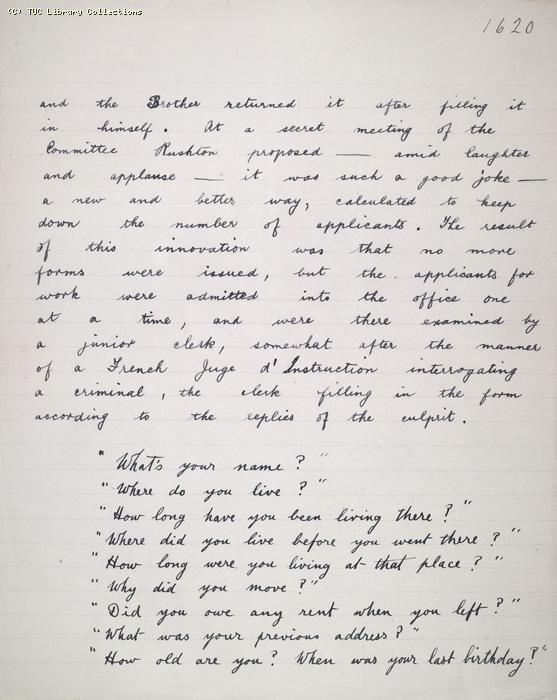 (C) TUC Library Collections
1620
and the Brother returned it after filling it
in himself. At a secret meeting of the
Committee Rushton proposed — amid laughter
and applause — it was such a good joke —
a new and better way, calculated to keep
down the number of applicants. The result
of this innovation was that no more
forms were issued, but the applicants for
work were admitted into the office one
at a time, and were there examined by
a junior clerk, somewhat after the manner
of a French Juge d'Instruction interrogating
a criminal, the clerk filling in the form
according to the replies of the culprit.
"What's your name?"
"Where do you live?"
"How long have you been living there?"
"Where did you live before you went there?"
"How long were you living at that place?"
"Why did you move?"
"Did you owe any rent when you left?"
"What was your previous address?"
"How old are you? When was your last birthday?"